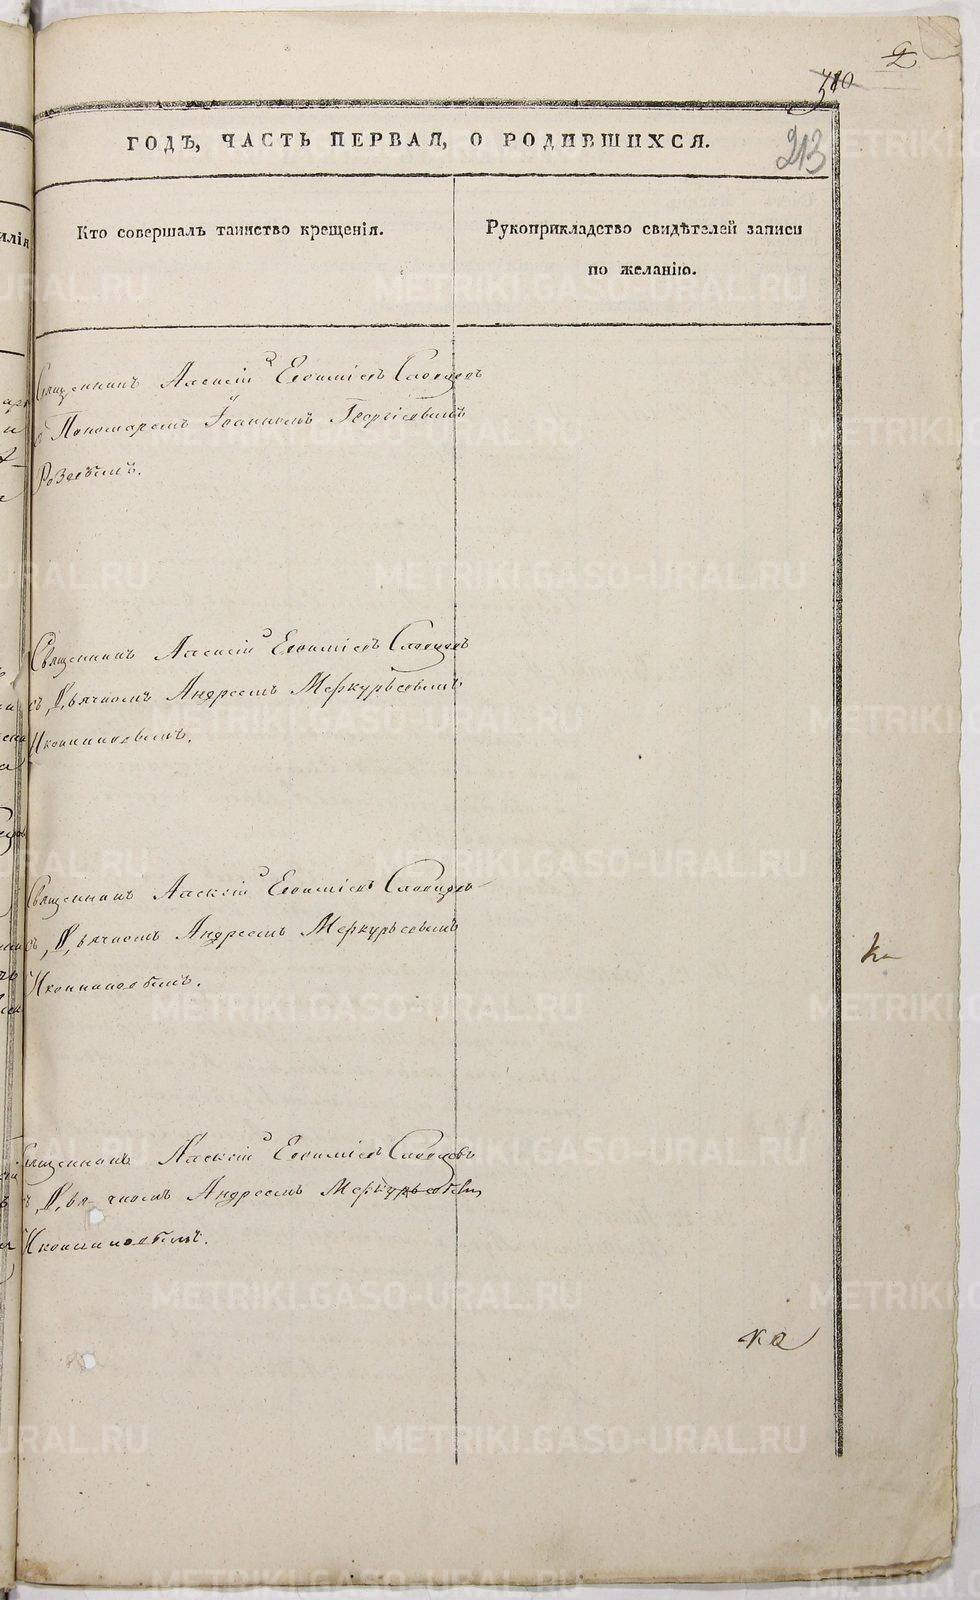 2
310
213
ГОДЪ, ЧАСТЬ ПЕРВАЯ, О РОДИВШИХСЯ.
Кто совершалъ таинство крещенія.
Рукоприкладство свидѣтелей записи
по желанію.
Священникъ Алексій Евфимієвъ Словцовъ
съ Пономаремъ Іоанномъ Георгіевымъ
Священникъ Алексій Евфимієвъ Словцовъ
съ Дьячкомъ Андреемъ Меркурьевымъ
Иконниковымъ.
Священникъ Алексій Евфимієвъ Словцовъ
съ Дьячкомъ Андреемъ Меркурьевымъ
Иконниковымъ.
Священникъ Алексій Евфимієвъ Словцовъ
съ Дьячкомъ Андреемъ Меркурьевым
Иконниковымъ.
METRIKI.GASO-URAL.RU